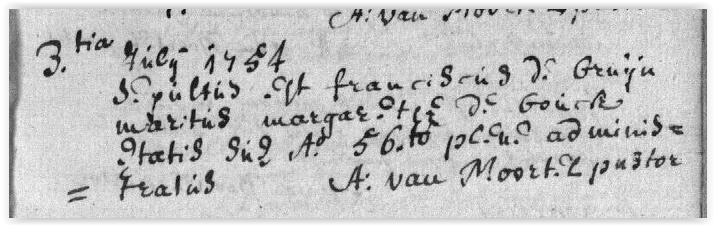 A: van Moortel pastor
3.tia July 1754
Sepultus est franciscus de bruyn
maritus margaretæ de bouck
Ætatis suæ A° 56.to plene adminis=
= tratus A: van Moortel pastor